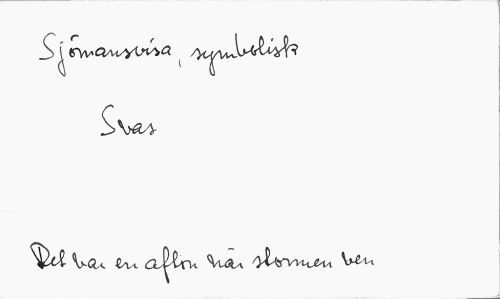 Sjömansvisa, symbolisk
Svas
Det var en afton när stormen ven